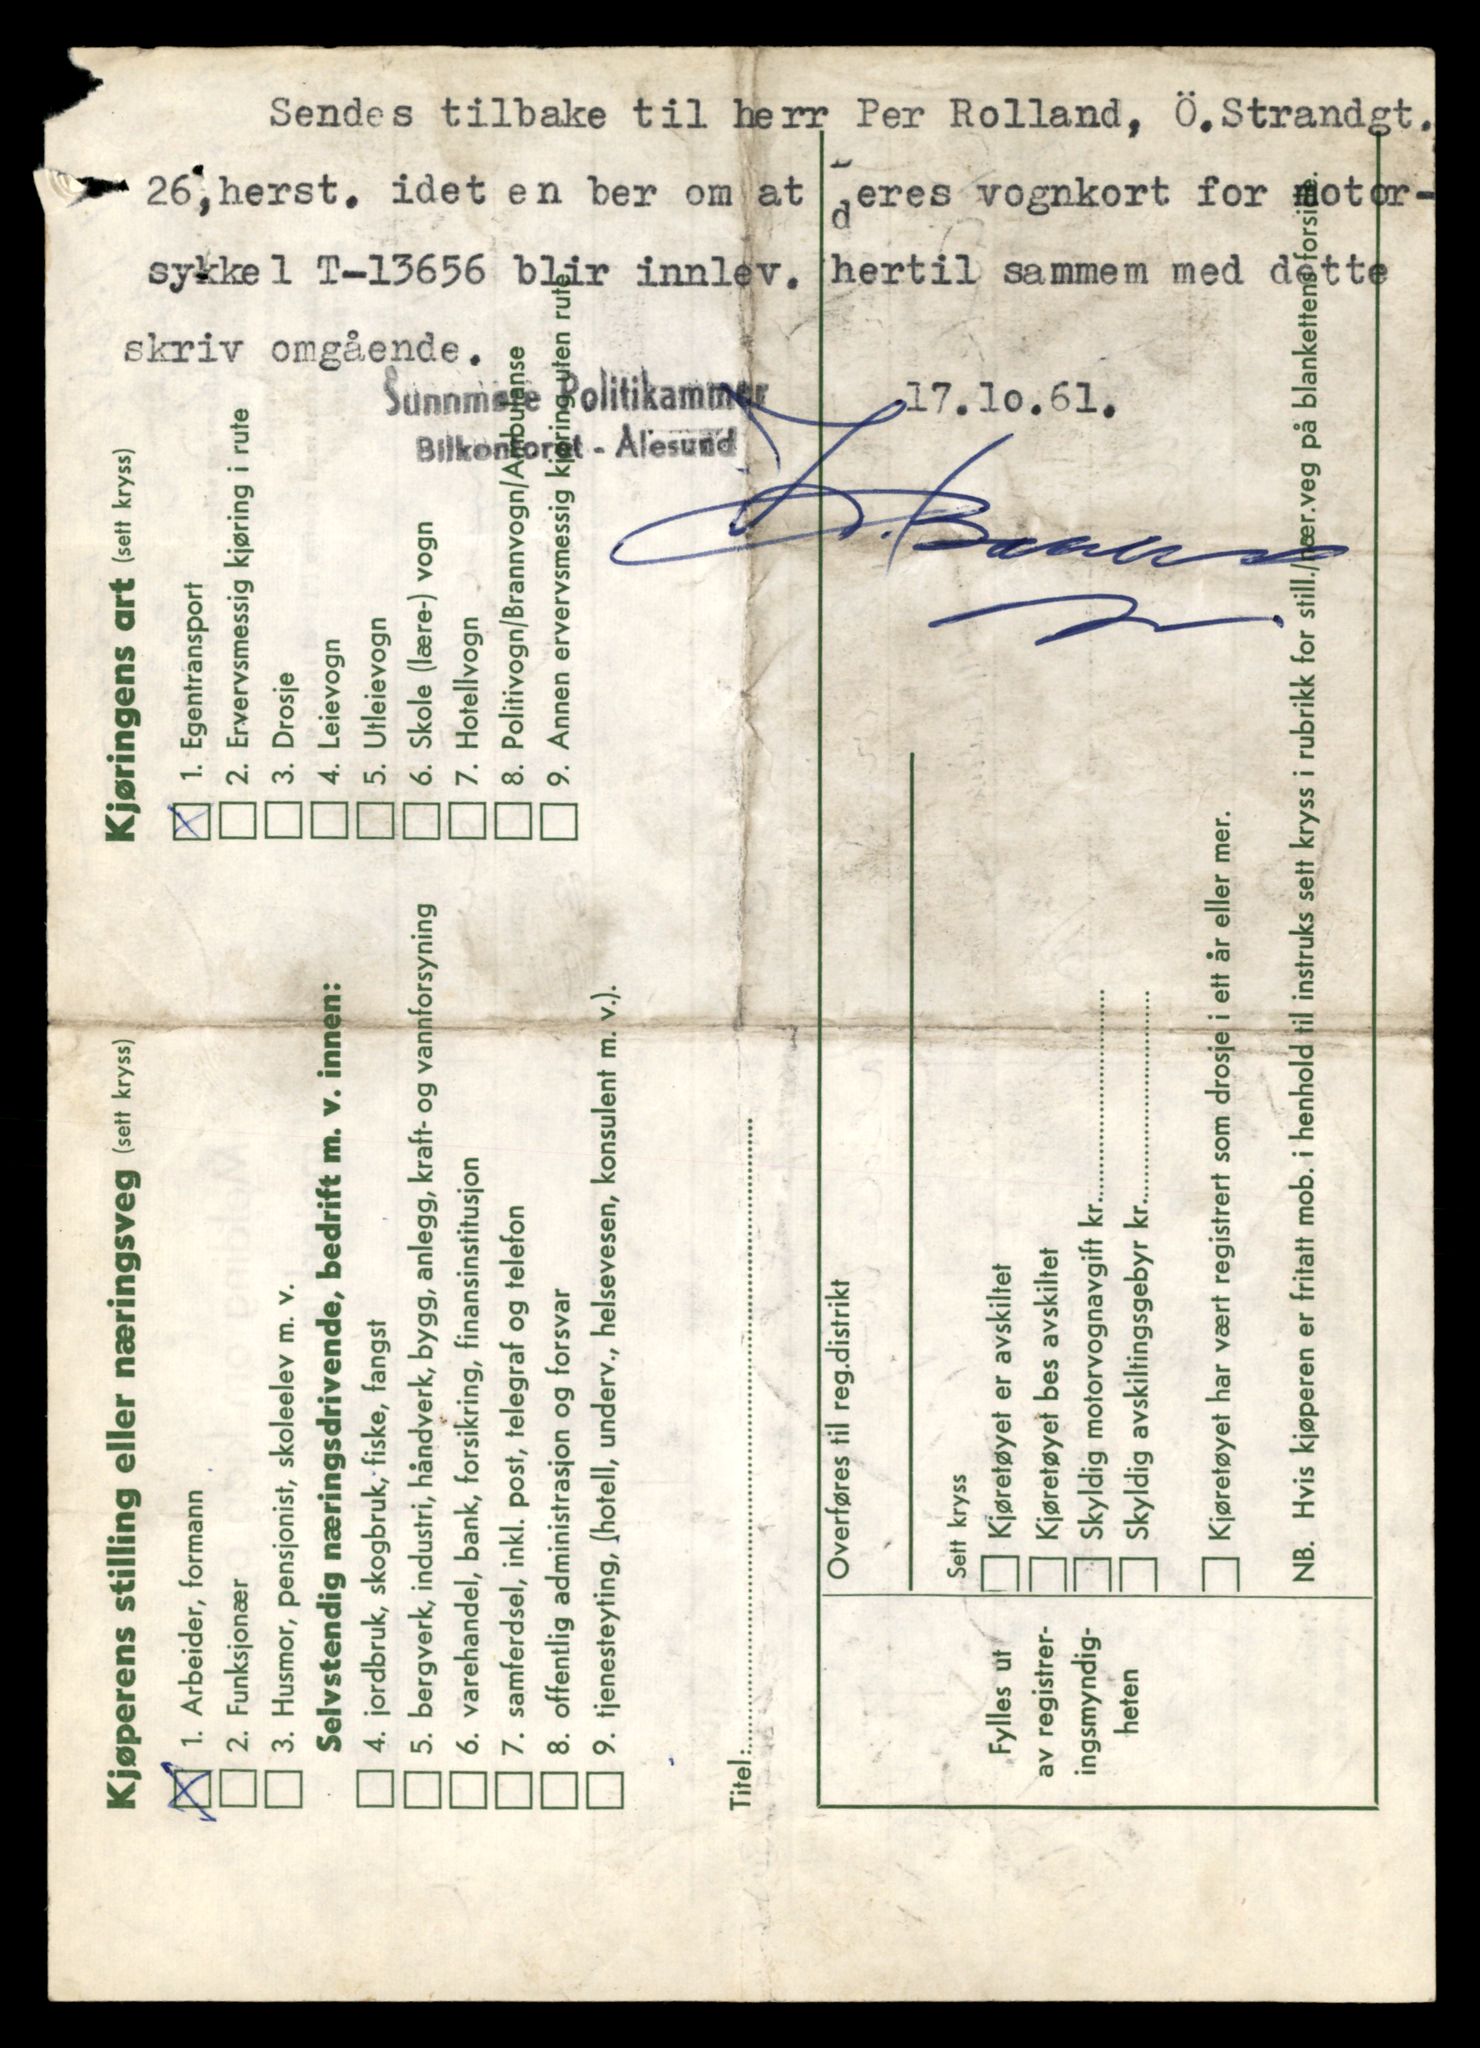 Sendes tilbake til herr Per Rolland, Ö.Strandgt.
26, herst. idet en ber om at deres vognkort for motor-
sykkel T-13656 blir innlev. hertil sammem med dette
skriv omgående.
Sunnmøre Politikammer
17.10.61.
Bilkontoret - Ålesund
Kjøperens stilling eller næringsveg (sett kryss)
1. Arbeider, formann
2. Funksjonær
3. Husmor, pensjonist, skoleelev m. v.
Selvstendig næringsdrivende, bedrift m. v. innen:
4. jordbruk, skogbruk, fiske, fangst
5. bergverk, industri, håndverk, bygg, anlegg, kraft- og vannforsyning
6. varehandel, bank, forsikring, finansinstitusjon
7. samferdsel, inkl. post, telegraf og telefon
8. offentlig administrasjon og forsvar
9. tjenesteyting, (hotell, underv., helsevesen, konsulent m. v.).
Titel:
Kjøringens art (sett kryss)
1. Egentransport
2. Ervervsmessig kjøring i rute
3. Drosje
4. Leievogn
5. Utleievogn
6. Skole (lære-) vogn
7. Hotellvogn
8. Politivogn/Brannvogn/Ambulanse
9. Annen ervervsmessig kjøring uten rute
Fylles ut
av registrer-
ingsmyndig-
heten
Overføres til reg.distrikt
Sett kryss
Kjøretøyet er avskiltet
Kjøretøyet bes avskiltet
Skyldig motorvognavgift kr.
Skyldig avskiltingsgebyr kr.
Kjøretøyet har vært registrert som drosje i ett år eller mer.
NB. Hvis kjøperen er fritatt mob. i henhold til instruks sett kryss i rubrikk for still./nær.veg på blankettens forside.